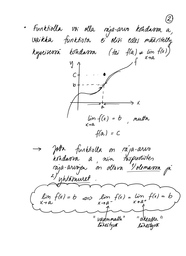 ②
• Funktiolla voi olla raja-arvo kohdassa a,
vaikka funktiota ei olisi edes määritelty
kyseisessä kohdassa (tai f(a) ≠ lim f(x))
x→a
y
f
c
b
a
x
lim f(x) = b, mutta
x→a
f(a) = c
→ Jotta funktiolla on raja-arvo
kohdassa a, niin toispuolisten
raja-arvojen on oltava olemassa ja
yhtäsuuret.
lim f(x) = b ⇔ lim f(x) = lim f(x) = b
x→a x→a⁻ x→a⁺
"vasemmalta" "oikealta"